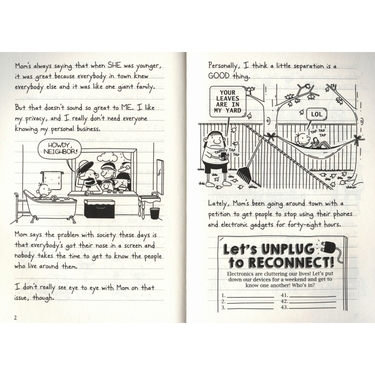 Mom's always saying that when SHE was younger,
it was great because everybody in town knew
everybody else and it was like one giant family.
But that doesn't sound so great to ME. I like
my privacy, and I really don't need everyone
knowing my personal business.
HOWDY,
NEIGHBOR!
Mom says the problem with society these days is
that everybody's got their nose in a screen and
nobody takes the time to get to know the people
who live around them.
I don't really see eye to eye with Mom on that
issue, though.
2
Personally, I think a little separation is a
GOOD thing.
YOUR
LEAVES
ARE IN
MY YARD
LOL
TAP
TAP
Lately, Mom's been going around town with a
petition to get people to stop using their phones
and electronic gadgets for forty-eight hours.
Let's UNPLUG
to RECONNECT!
Electronics are cluttering our lives! Let's put
down our devices for a weekend and get to
know one another! Who's in?
1.
2.
3.
41.
42.
43.